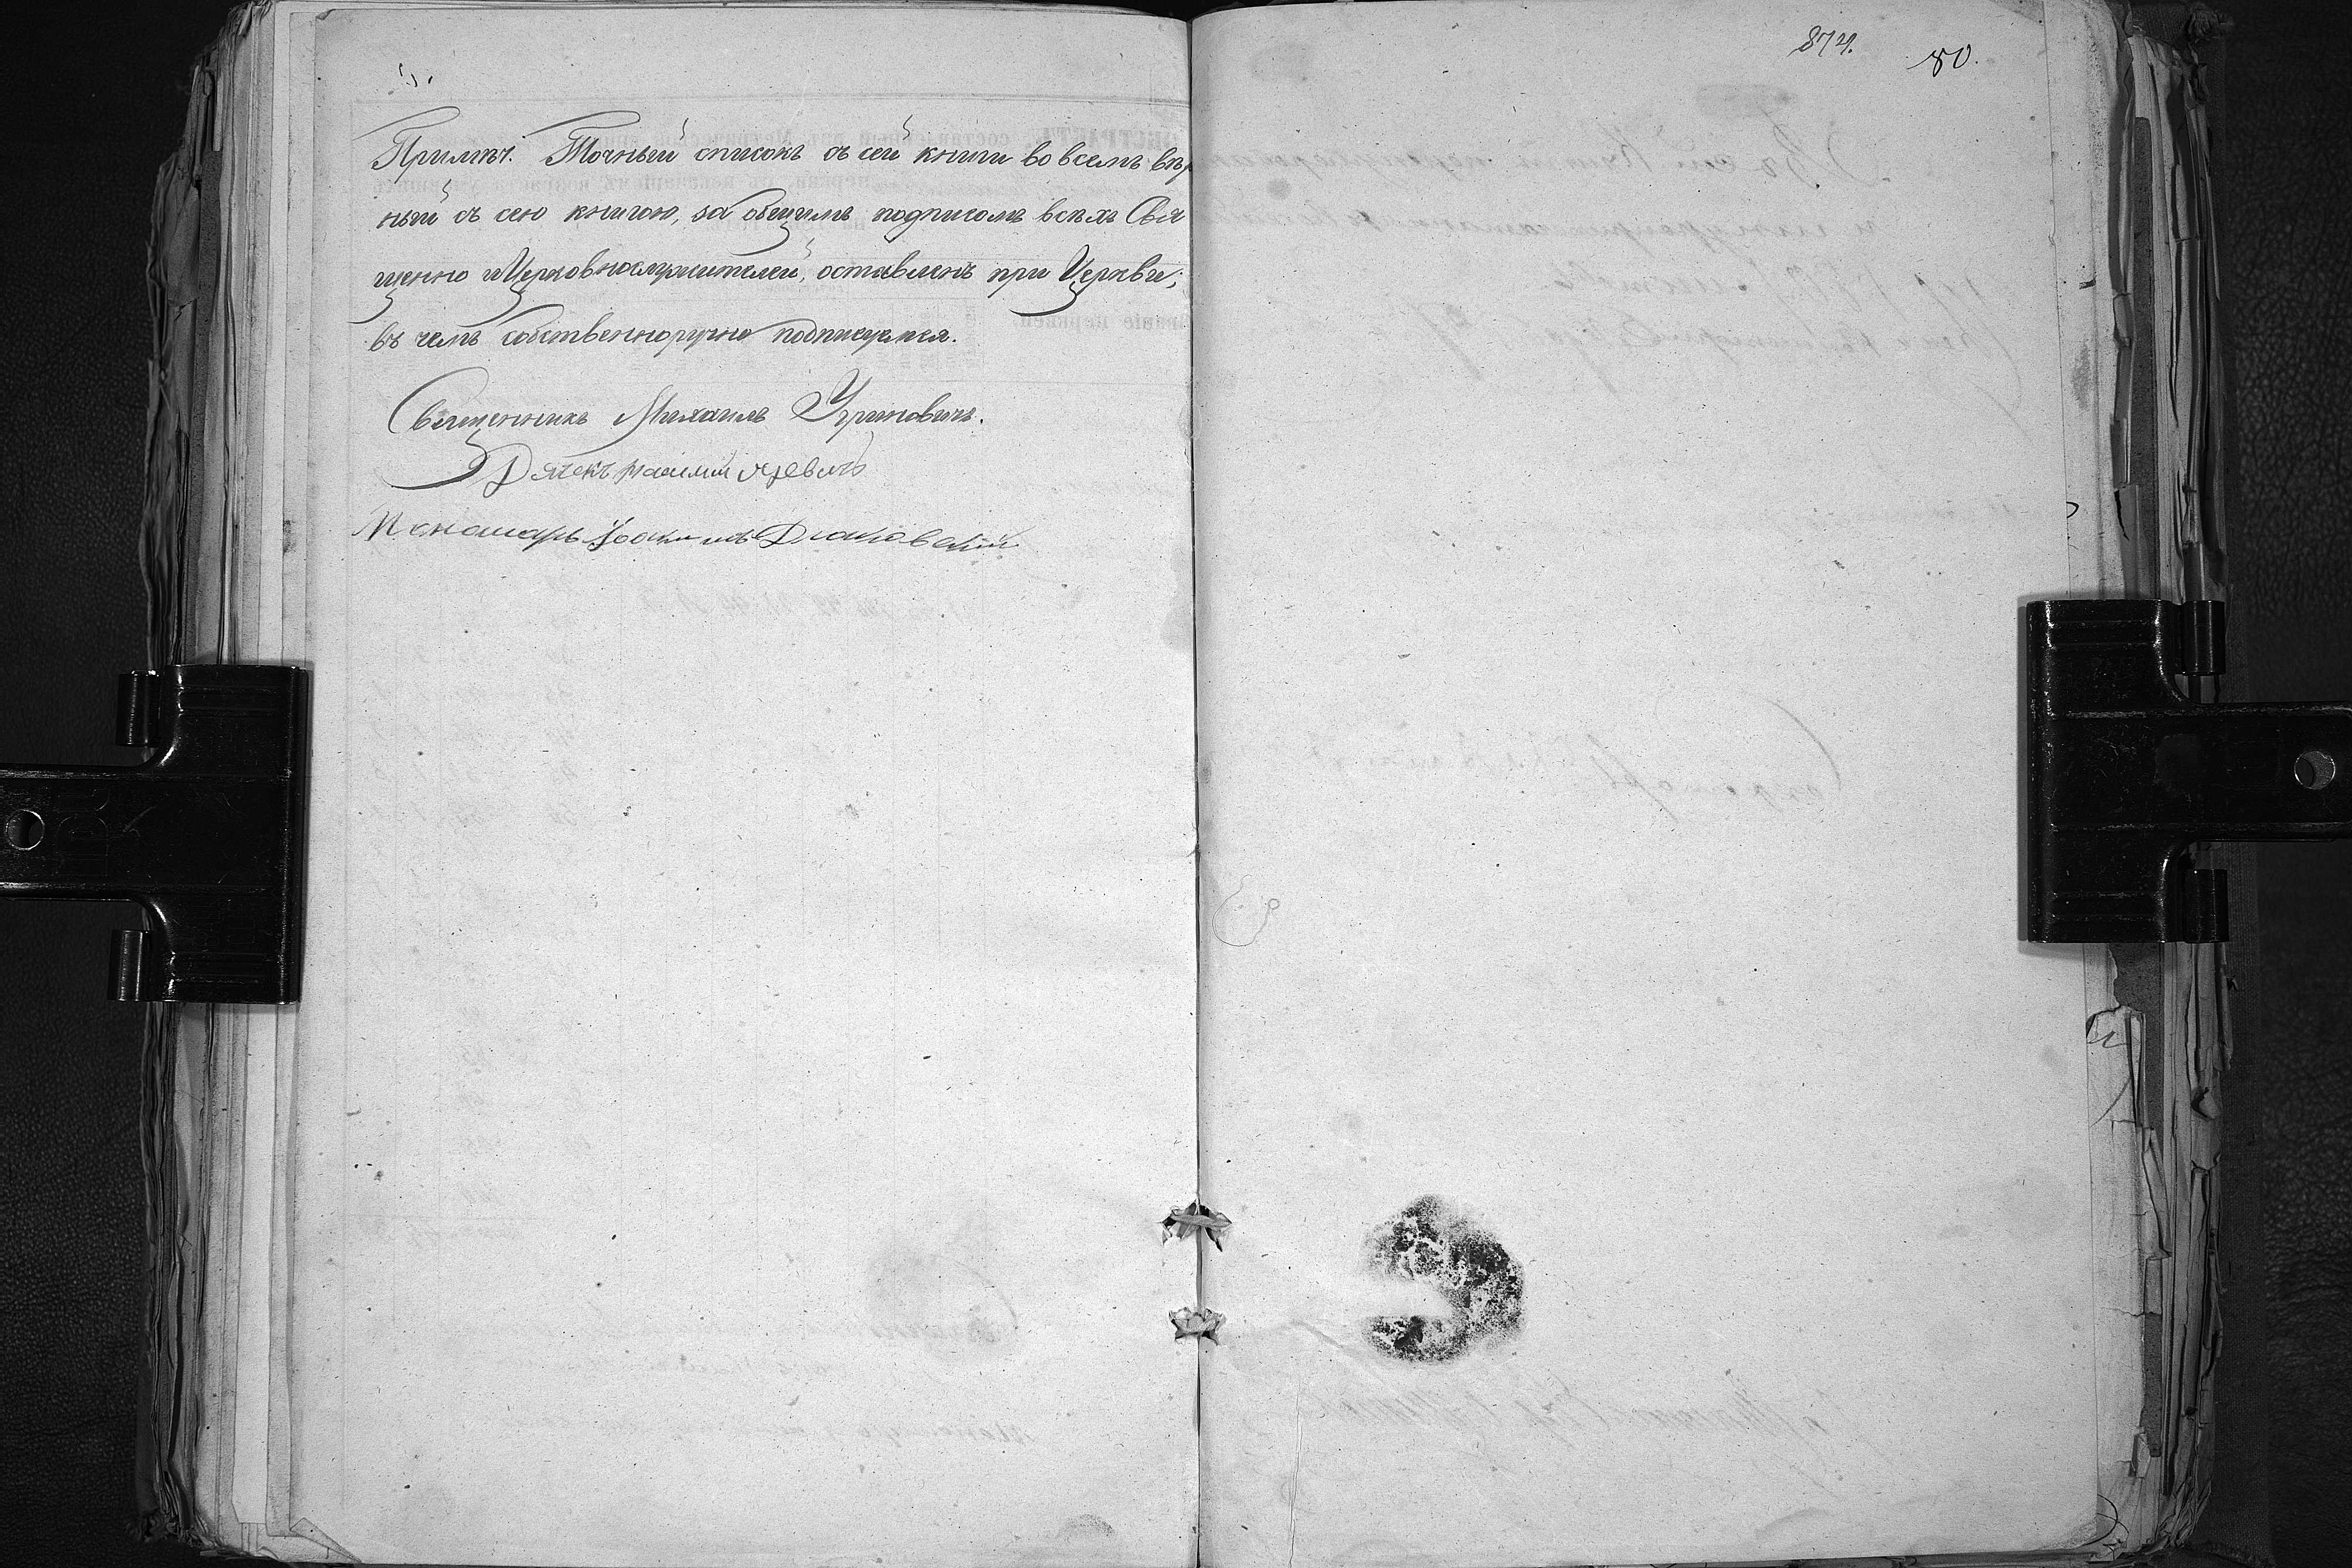 874. 80.
Примѣч. Точный списокъ съ сей книги во всемъ вѣр
ный съ сею книгою, за общимъ подписомъ всѣхъ Свя
щенно и Церковнослужителей, оставленъ при Церкви;
въ чемъ собственноручно подписуемся.
Священникъ Михаилъ Угриновичъ.
Дячекъ
Пономарь Іоакимъ Діаковскій